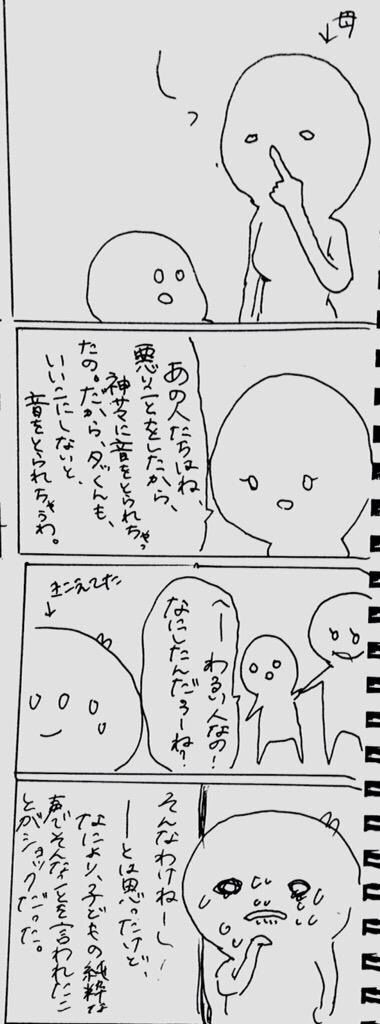 母
あの人たちはね、
悪いことをしたから、
神サマに音をとられちゃっ
たの。だから、ダッくんも、
いいこにしないと、
音をとられちゃうわ。
へーわるい人なの！
なにしたんだろーね？
まこえてた
そんなわけねーし！
ーとは思ったけど、
なにより、子どもの純粋な
声でそんなことを言われたこ
とがショックだった。